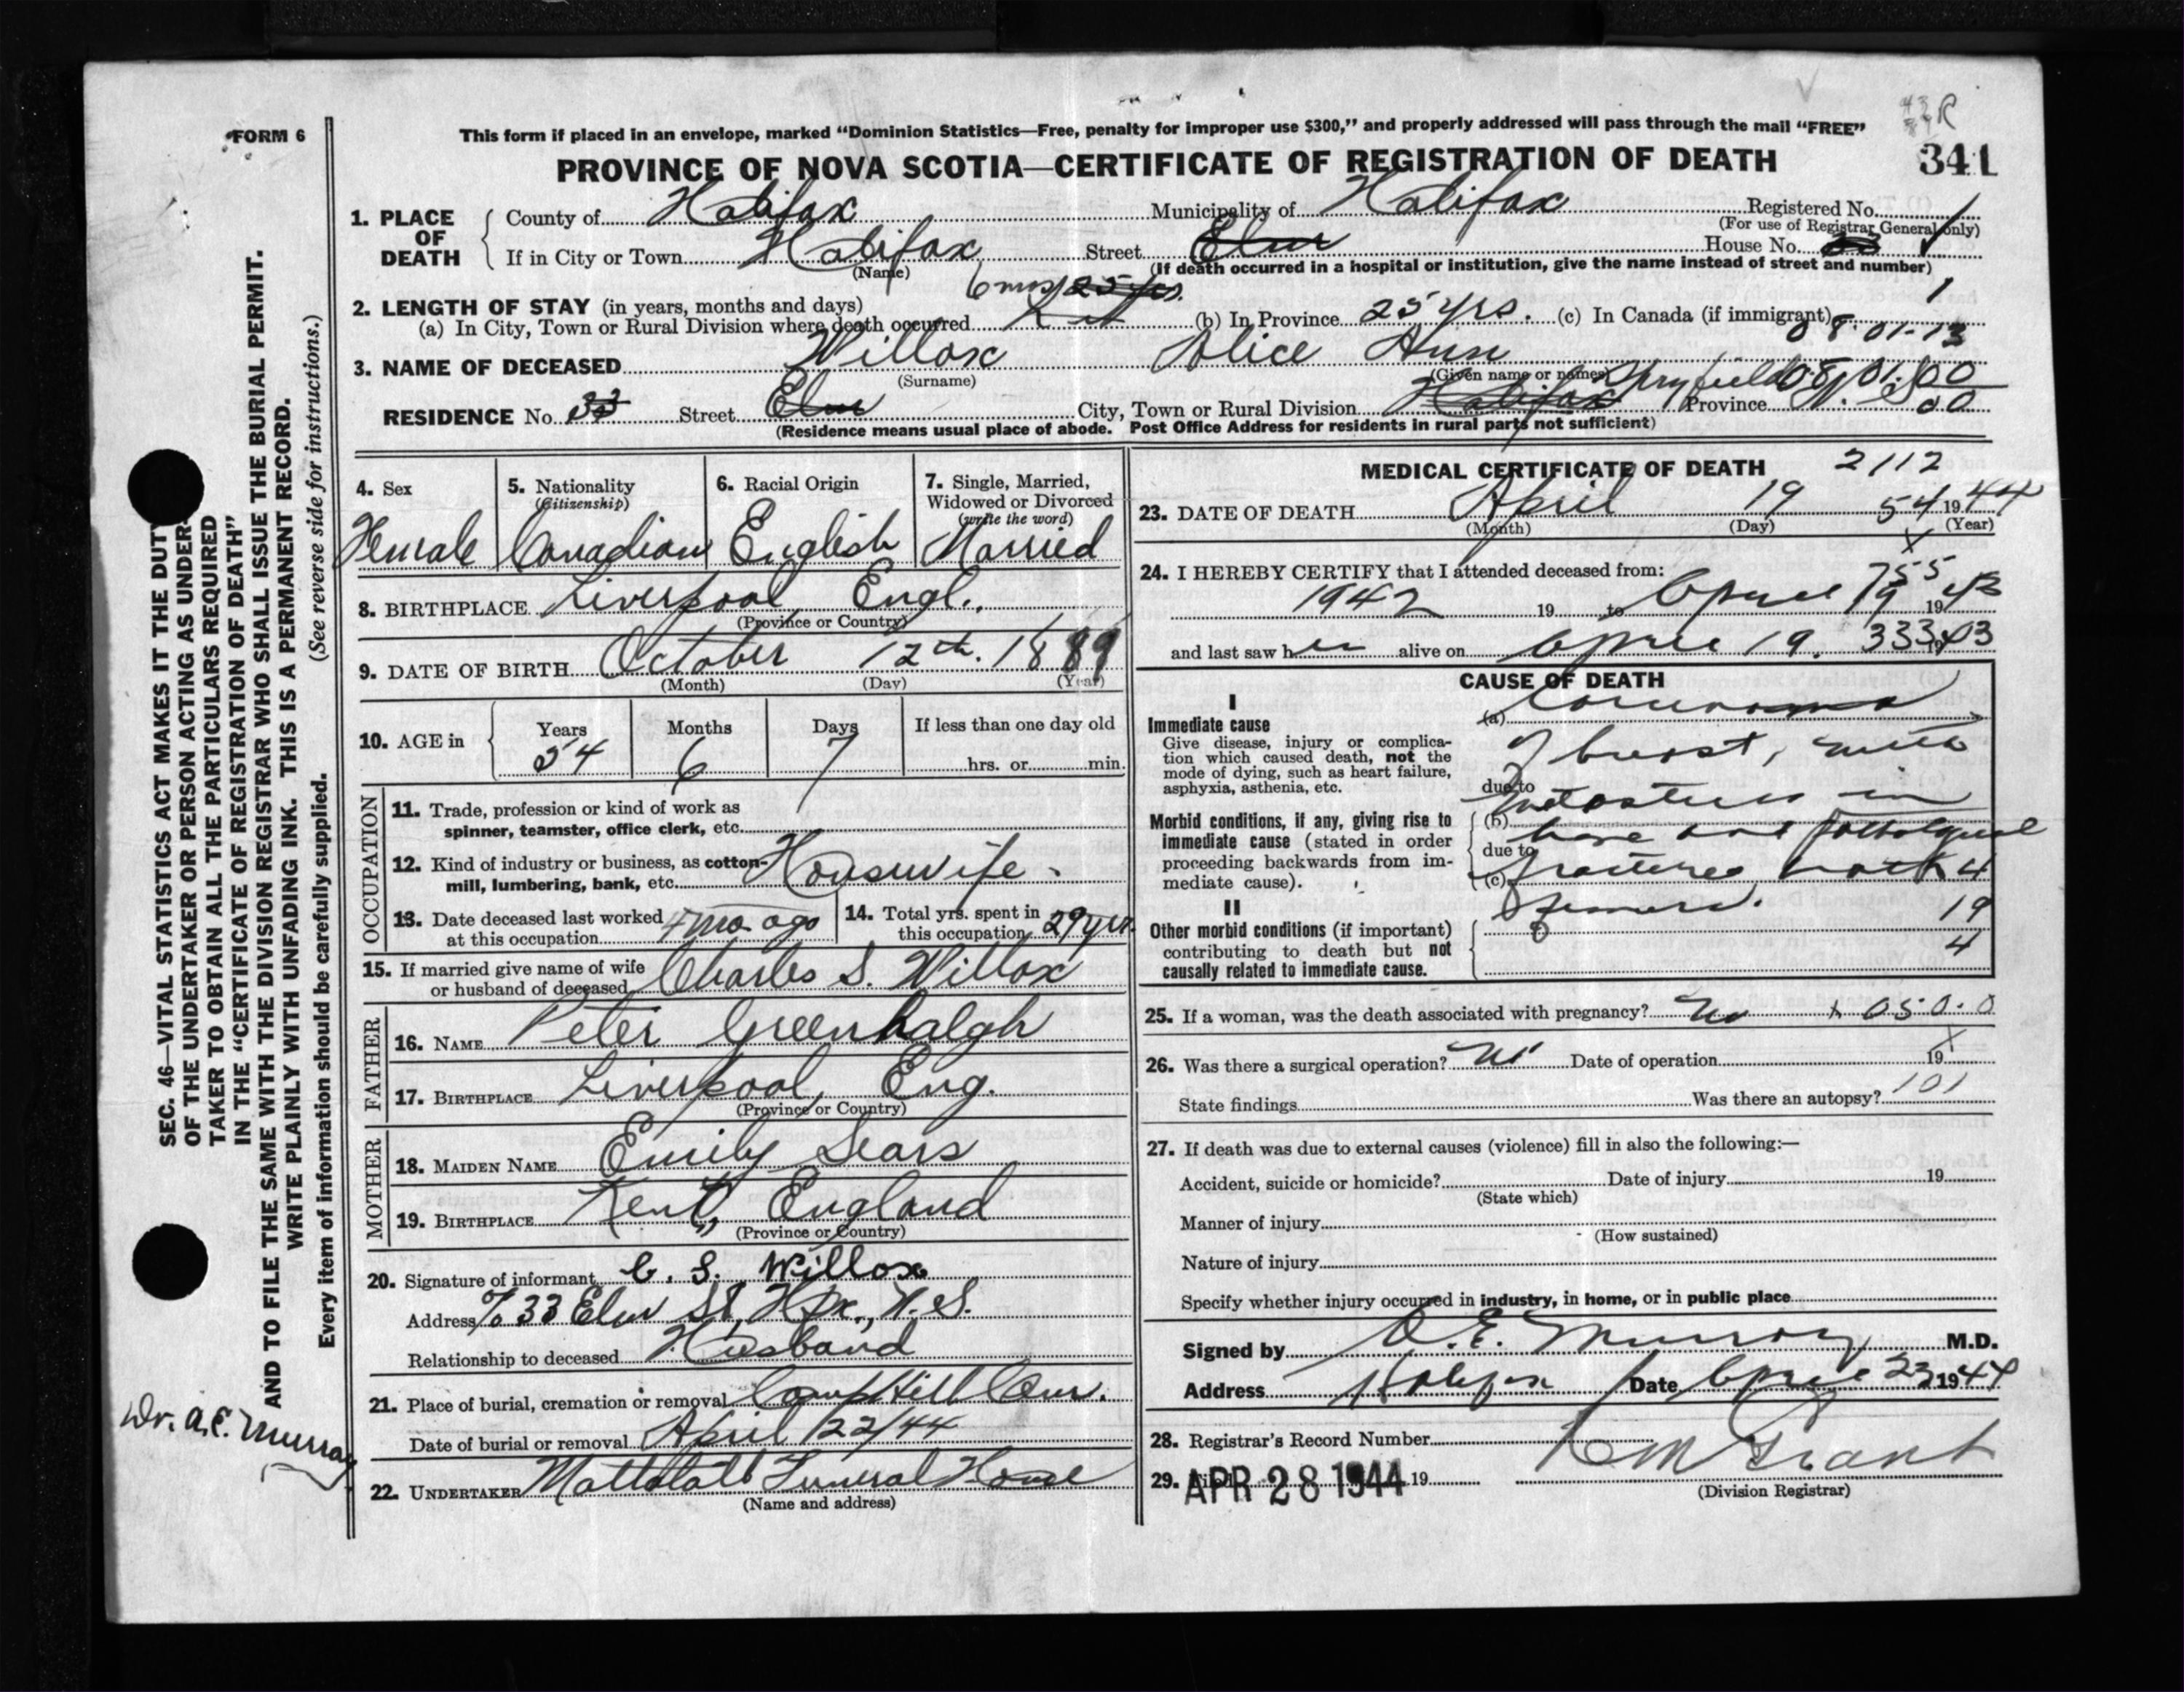 FORM 6
This form if placed in an envelope, marked "Dominion Statistics—Free, penalty for improper use $300," and properly addressed will pass through the mail "FREE"
PROVINCE OF NOVA SCOTIA—CERTIFICATE OF REGISTRATION OF DEATH
341
1. PLACE OF DEATH
County of Halifax Municipality of Halifax Registered No.
(For use of Registrar General only)
If in City or Town Halifax Street Elm House No. 33
(Name) (If death occurred in a hospital or institution, give the name instead of street and number)
6 mos 25 yrs.
2. LENGTH OF STAY (in years, months and days)
(a) In City, Town or Rural Division where death occurred (b) In Province 25 yrs. (c) In Canada (if immigrant)
08.01-13
3. NAME OF DECEASED Willox Alice Ann
(Surname) (Given name or names)
Spryfield 08 01.00
RESIDENCE No. 33 Street Elm City, Town or Rural Division Halifax Province N.S. 00
(Residence means usual place of abode. Post Office Address for residents in rural parts not sufficient)
4. Sex
Female
5. Nationality
(Citizenship)
Canadian
6. Racial Origin
English
7. Single, Married, Widowed or Divorced
(write the word)
Married
8. BIRTHPLACE Liverpool, Engl.
(Province or Country)
9. DATE OF BIRTH October 12th. 1889
(Month) (Day) (Year)
10. AGE in
Years Months Days If less than one day old
54 6 7 hrs. or min.
OCCUPATION
11. Trade, profession or kind of work as spinner, teamster, office clerk, etc.
12. Kind of industry or business, as cotton-mill, lumbering, bank, etc. Housewife.
13. Date deceased last worked at this occupation 4 mo. ago
14. Total yrs. spent in this occupation 29 yrs.
15. If married give name of wife or husband of deceased Charles S. Willox
FATHER
16. NAME Peter Greenhalgh
17. BIRTHPLACE Liverpool, Eng.
(Province or Country)
MOTHER
18. MAIDEN NAME Emily Sears
19. BIRTHPLACE Kent, England
(Province or Country)
20. Signature of informant C. S. Willox
Address % 33 Elm St, Hfx., N.S.
Relationship to deceased Husband
21. Place of burial, cremation or removal Camp Hill Cem.
Date of burial or removal April 22/44
22. UNDERTAKER Mattatall Funeral Home
(Name and address)
MEDICAL CERTIFICATE OF DEATH 2112
23. DATE OF DEATH April 19 54 1944
(Month) (Day) (Year)
24. I HEREBY CERTIFY that I attended deceased from:
1942 19 to April 19 1943
55
and last saw her alive on April 19. 1943
333
CAUSE OF DEATH
I
Immediate cause
Give disease, injury or complication which caused death, not the mode of dying, such as heart failure, asphyxia, asthenia, etc.
Morbid conditions, if any, giving rise to immediate cause (stated in order proceeding backwards from immediate cause).
II
Other morbid conditions (if important) contributing to death but not causally related to immediate cause.
(a) Carcinoma
of breast, with
due to metastases in
(b) bone and pathological
due to
(c) fractures both 4
femurs. 19
4
25. If a woman, was the death associated with pregnancy? no 050.0
26. Was there a surgical operation? no Date of operation 19
State findings Was there an autopsy? 101
27. If death was due to external causes (violence) fill in also the following:—
Accident, suicide or homicide? Date of injury 19
(State which)
Manner of injury
(How sustained)
Nature of injury
Specify whether injury occurred in industry, in home, or in public place
Signed by A. E. Murray M.D.
Address Halifax Date April 23 1944
28. Registrar's Record Number
29. Filed APR 28 1944 19
(Division Registrar)
SEC. 46—VITAL STATISTICS ACT MAKES IT THE DUTY
OF THE UNDERTAKER OR PERSON ACTING AS UNDER-
TAKER TO OBTAIN ALL THE PARTICULARS REQUIRED
IN THE "CERTIFICATE OF REGISTRATION OF DEATH"
AND TO FILE THE SAME WITH THE DIVISION REGISTRAR WHO SHALL ISSUE THE BURIAL PERMIT.
WRITE PLAINLY WITH UNFADING INK. THIS IS A PERMANENT RECORD.
Every item of information should be carefully supplied. (See reverse side for instructions.)
Dr. A. E. Murray